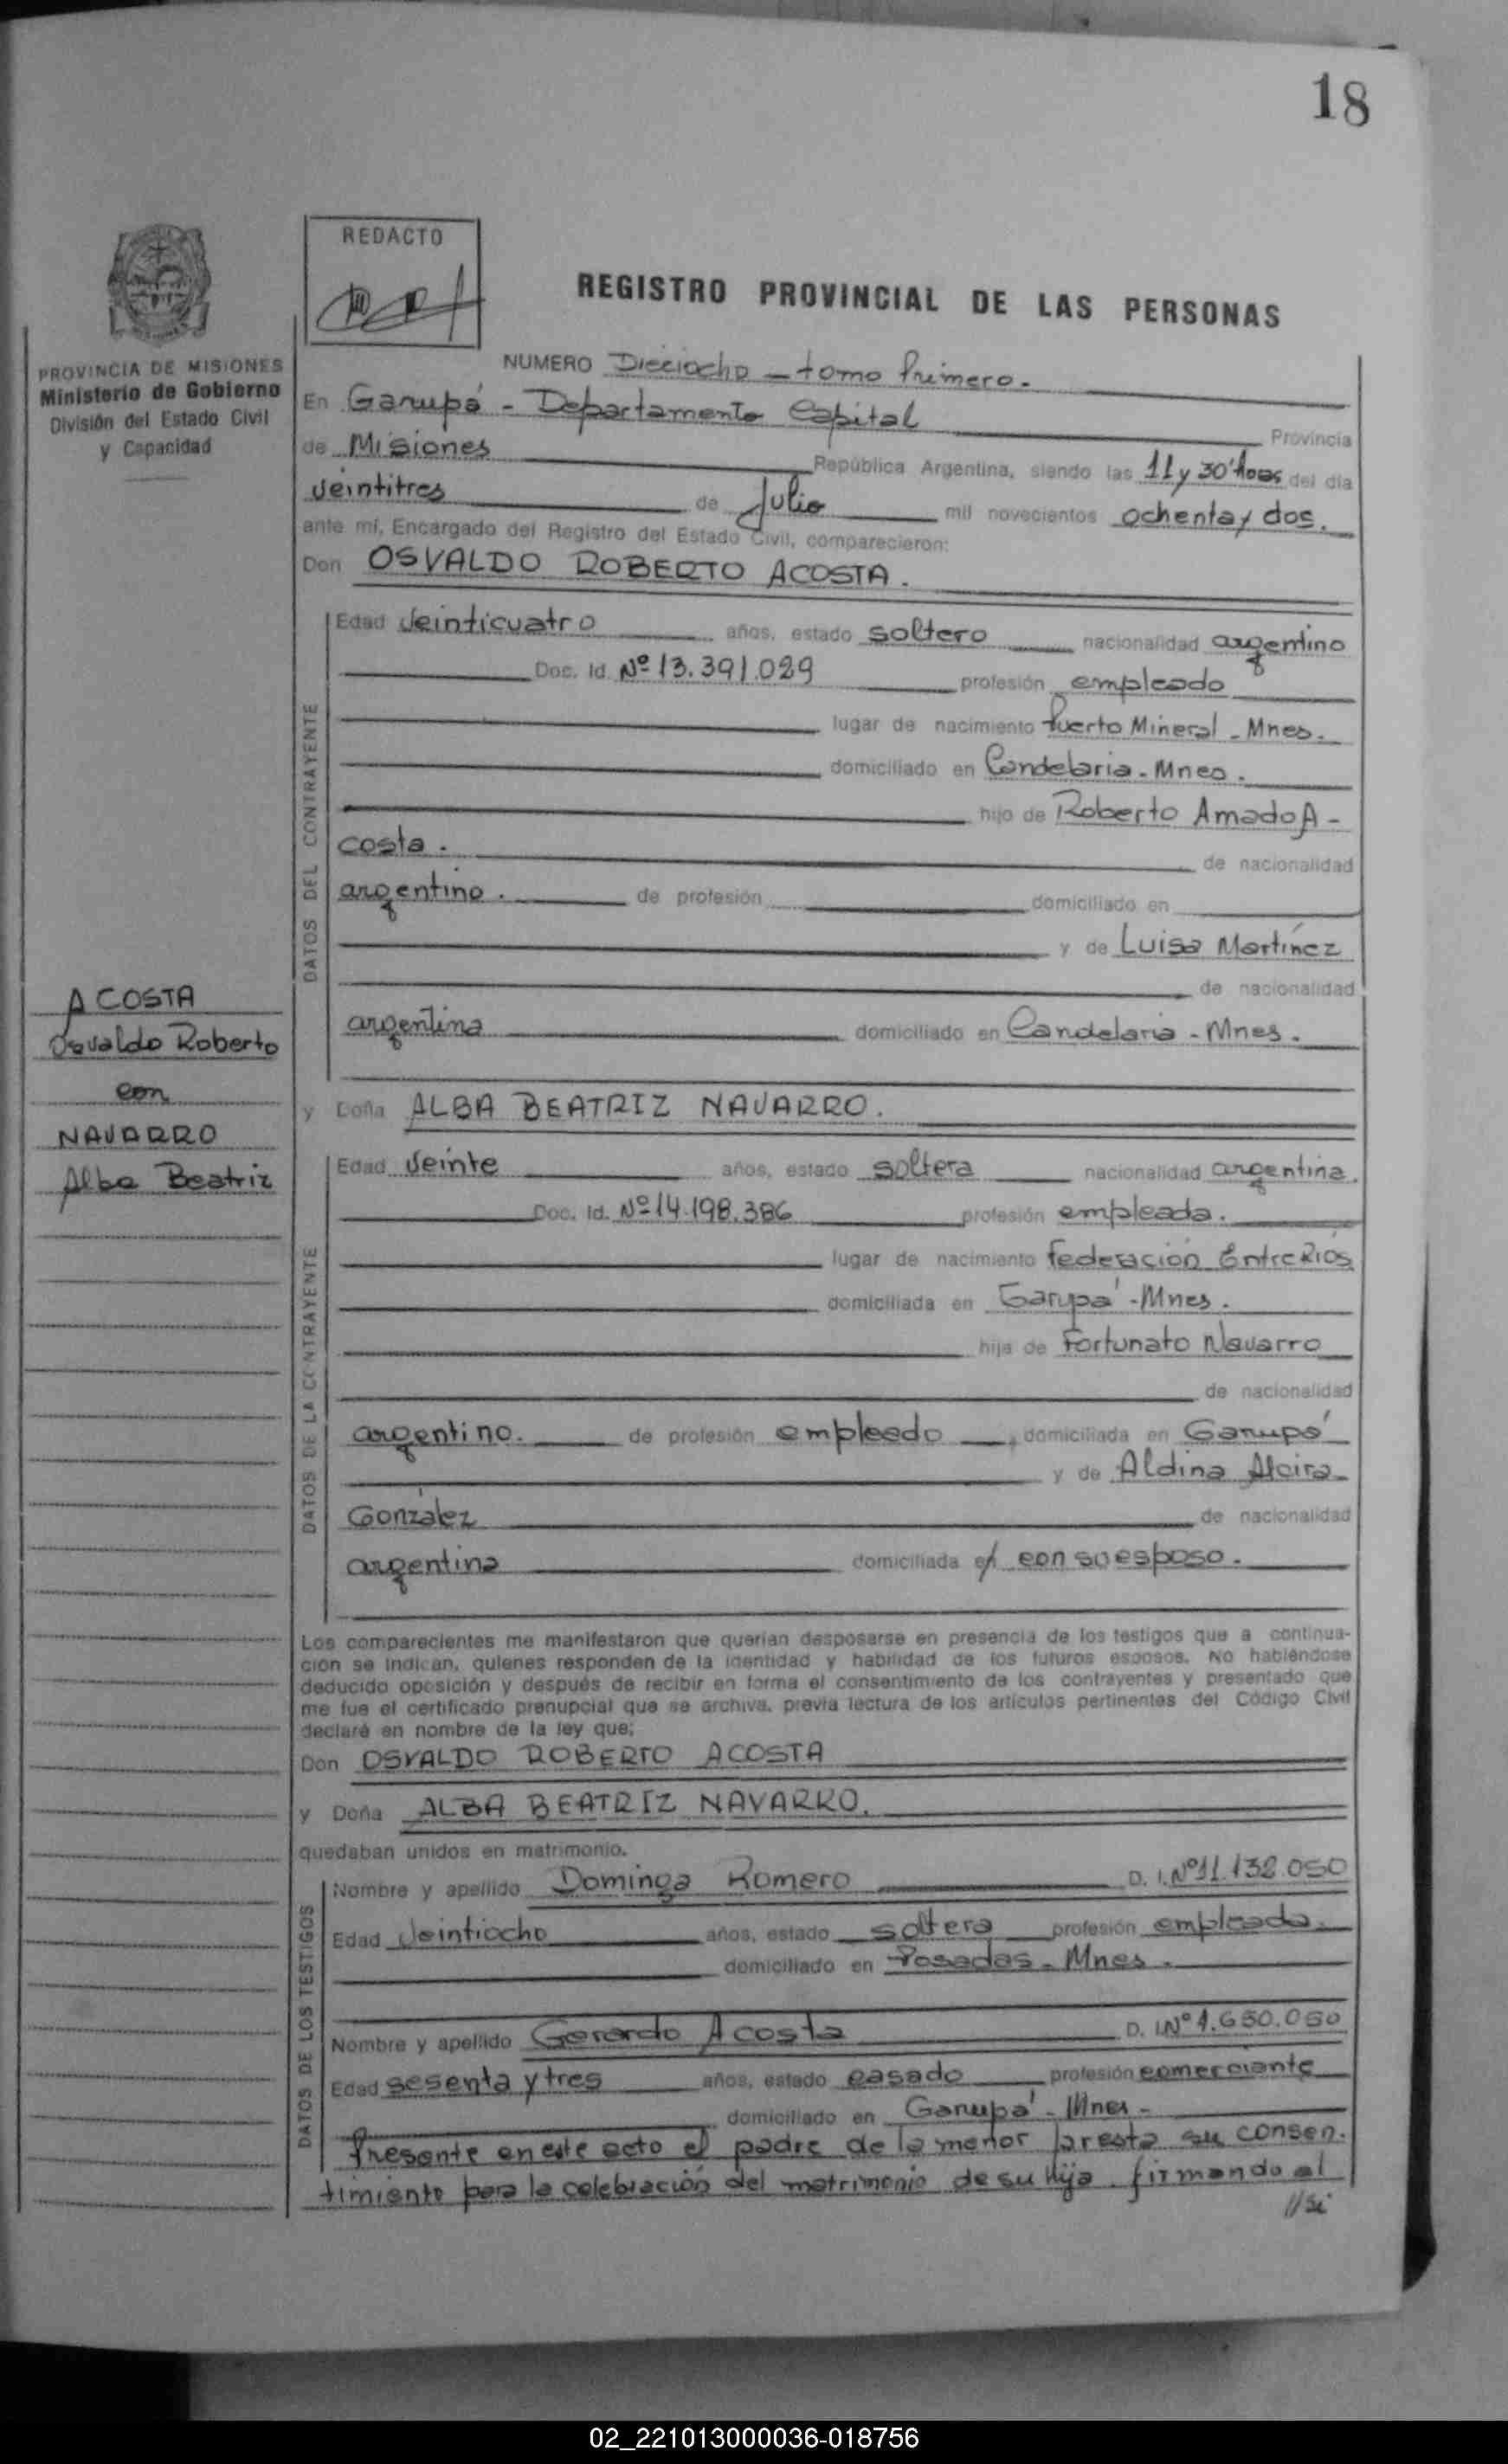 18
REDACTO
REGISTRO PROVINCIAL DE LAS PERSONAS
PROVINCIA DE MISIONES
Ministerio de Gobierno
División del Estado Civil
y Capacidad
NUMERO Dieciocho - tomo Primero.
En Garupá - Departamento Capital Provincia
de Misiones República Argentina, siendo las 11 y 30 horas del día
veintitres de Julio mil novecientos ochenta y dos.
ante mí, Encargado del Registro del Estado Civil, comparecieron:
Don OSVALDO ROBERTO ACOSTA.
DATOS DEL CONTRAYENTE
Edad veinticuatro años, estado soltero nacionalidad argentino
Doc. Id. Nº 13.391.029 profesión empleado
lugar de nacimiento Puerto Mineral - Mnes.
domiciliado en Candelaria - Mnes.
hijo de Roberto Amado A-
costa. de nacionalidad
argentino. de profesión domiciliado en
y de Luisa Martínez
de nacionalidad
argentina domiciliado en Candelaria - Mnes.
ACOSTA
Osvaldo Roberto
con
NAVARRO
Alba Beatriz
y Doña ALBA BEATRIZ NAVARRO.
DATOS DE LA CONTRAYENTE
Edad veinte años, estado soltera nacionalidad argentina.
Doc. Id. Nº 14.198.386 profesión empleada.
lugar de nacimiento Federación Entre Ríos
domiciliada en Garupá - Mnes.
hija de Fortunato Navarro
de nacionalidad
argentino. de profesión empleado, domiciliada en Garupá
y de Aldina Alcira
González de nacionalidad
argentina domiciliada en con su esposo.
Los comparecientes me manifestaron que querían desposarse en presencia de los testigos que a continua-
ción se indican, quienes responden de la identidad y habilidad de los futuros esposos. No habiéndose
deducido oposición y después de recibir en forma el consentimiento de los contrayentes y presentado que
me fue el certificado prenupcial que se archiva, previa lectura de los artículos pertinentes del Código Civil
declaré en nombre de la ley que:
Don OSVALDO ROBERTO ACOSTA
y Doña ALBA BEATRIZ NAVARRO.
quedaban unidos en matrimonio.
DATOS DE LOS TESTIGOS
Nombre y apellido Dominga Romero D. I. Nº 11.132.050
Edad veintiocho años, estado soltera profesión empleada.
domiciliado en Posadas - Mnes.
Nombre y apellido Gerardo Acosta D. I. Nº 1.650.050
Edad sesenta y tres años, estado casado profesión comerciante
domiciliado en Garupá - Mnes -
Presente en este acto el padre de la menor presta su consen.
timiento para la celebración del matrimonio de su hija firmando al
02_221013000036-018756